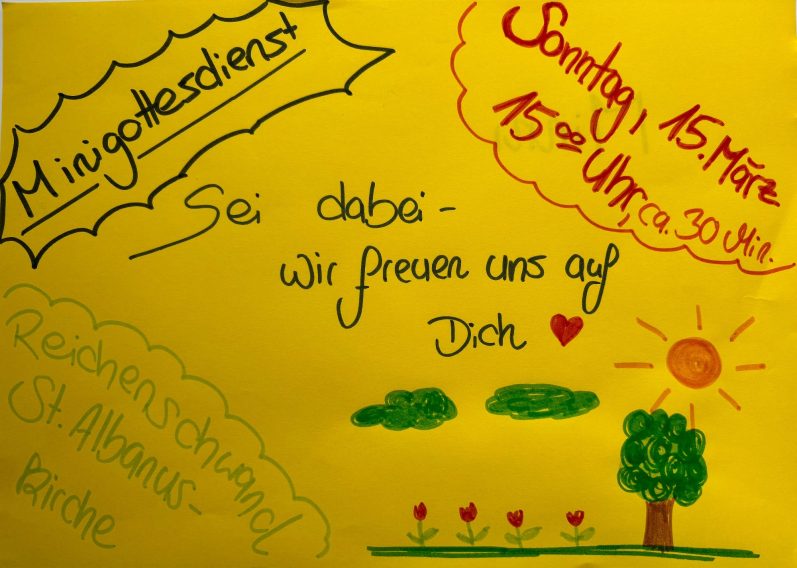 Minigottesdienst
Sonntag, 15. März
15 00 Uhr, ca. 30 Min.
Sei dabei -
wir freuen uns auf
Dich
Reichenschwand
St. Albanus-
Kirche